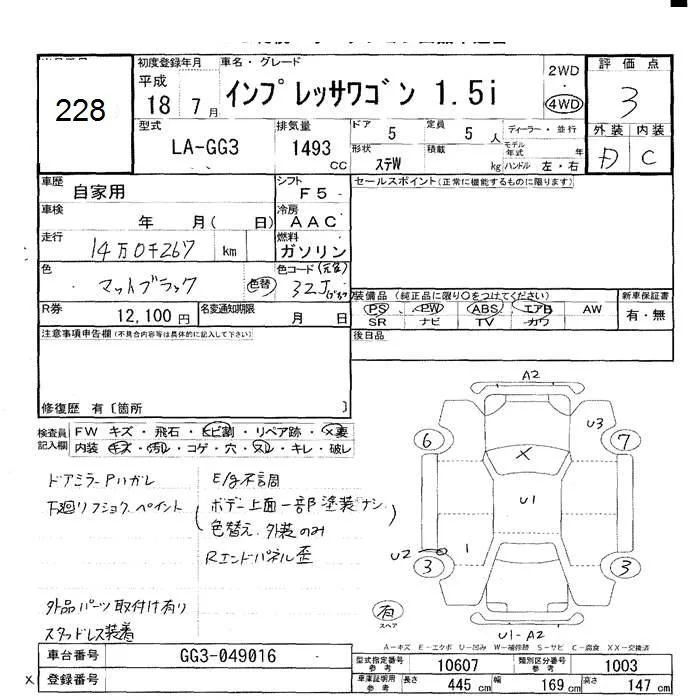 228
初度登録年月
平成
18 7 月
車名・グレード
インプレッサワゴン 1.5i
2WD
4WD
評価点
3
外装 内装
D C
型式
LA-GG3
排気量
1493
CC
ドア 5
定員 5 人
形状 ステW
積載 kg
ディーラー・並行
モデル年式 年
ハンドル 左・右
車歴
自家用
シフト
F5
車検
年 月( 日)
冷房
AAC
走行
14万0千267 km
燃料
ガソリン
色
マットブラック
色替
色コード(元色)
32J
R券
12,100円
名変通知期限
月 日
セールスポイント(正常に機能するものに限ります)
装備品(純正品に限り○をつけてください)
PS PW ABS エアB AW
SR ナビ TV カワ
新車保証書
有・無
後日品
注意事項申告欄(不具合内容等は具体的に記入して下さい)
修復歴 有〔箇所 〕
検査員記入欄
FW キズ・飛石・ヒビ割・リペア跡・×裏
内装 キズ・汚レ・コゲ・穴・スレ・キレ・破レ
ドアミラーPハガレ
下廻リフショク、ペイント
E/g不調
(ボデー上面一部塗装ナシ、)
色替え、外装のみ
Rエンドパネル歪
外品パーツ取付け有り
スタッドレス装着
A2
U3
6
7
X
U1
U2
1
3
3
有
スペア
U1-A2
A-キズ E-エクボ U-凹み W-補修跡 S-サビ C-腐食 XX-交換済
車台番号
GG3-049016
登録番号
型式指定番号 参考
10607
類別区分番号 参考
1003
車庫証明用 参考
長さ 445 cm
幅 169 cm
高さ 147 cm